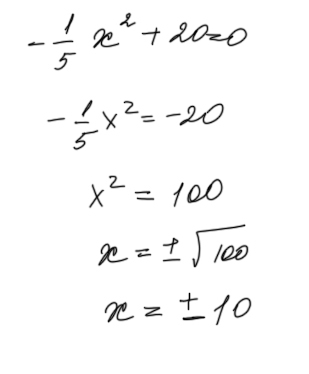 -1/5 x² + 20=0
-1/5 x² = -20
x² = 100
x = ± √100
x = ± 10